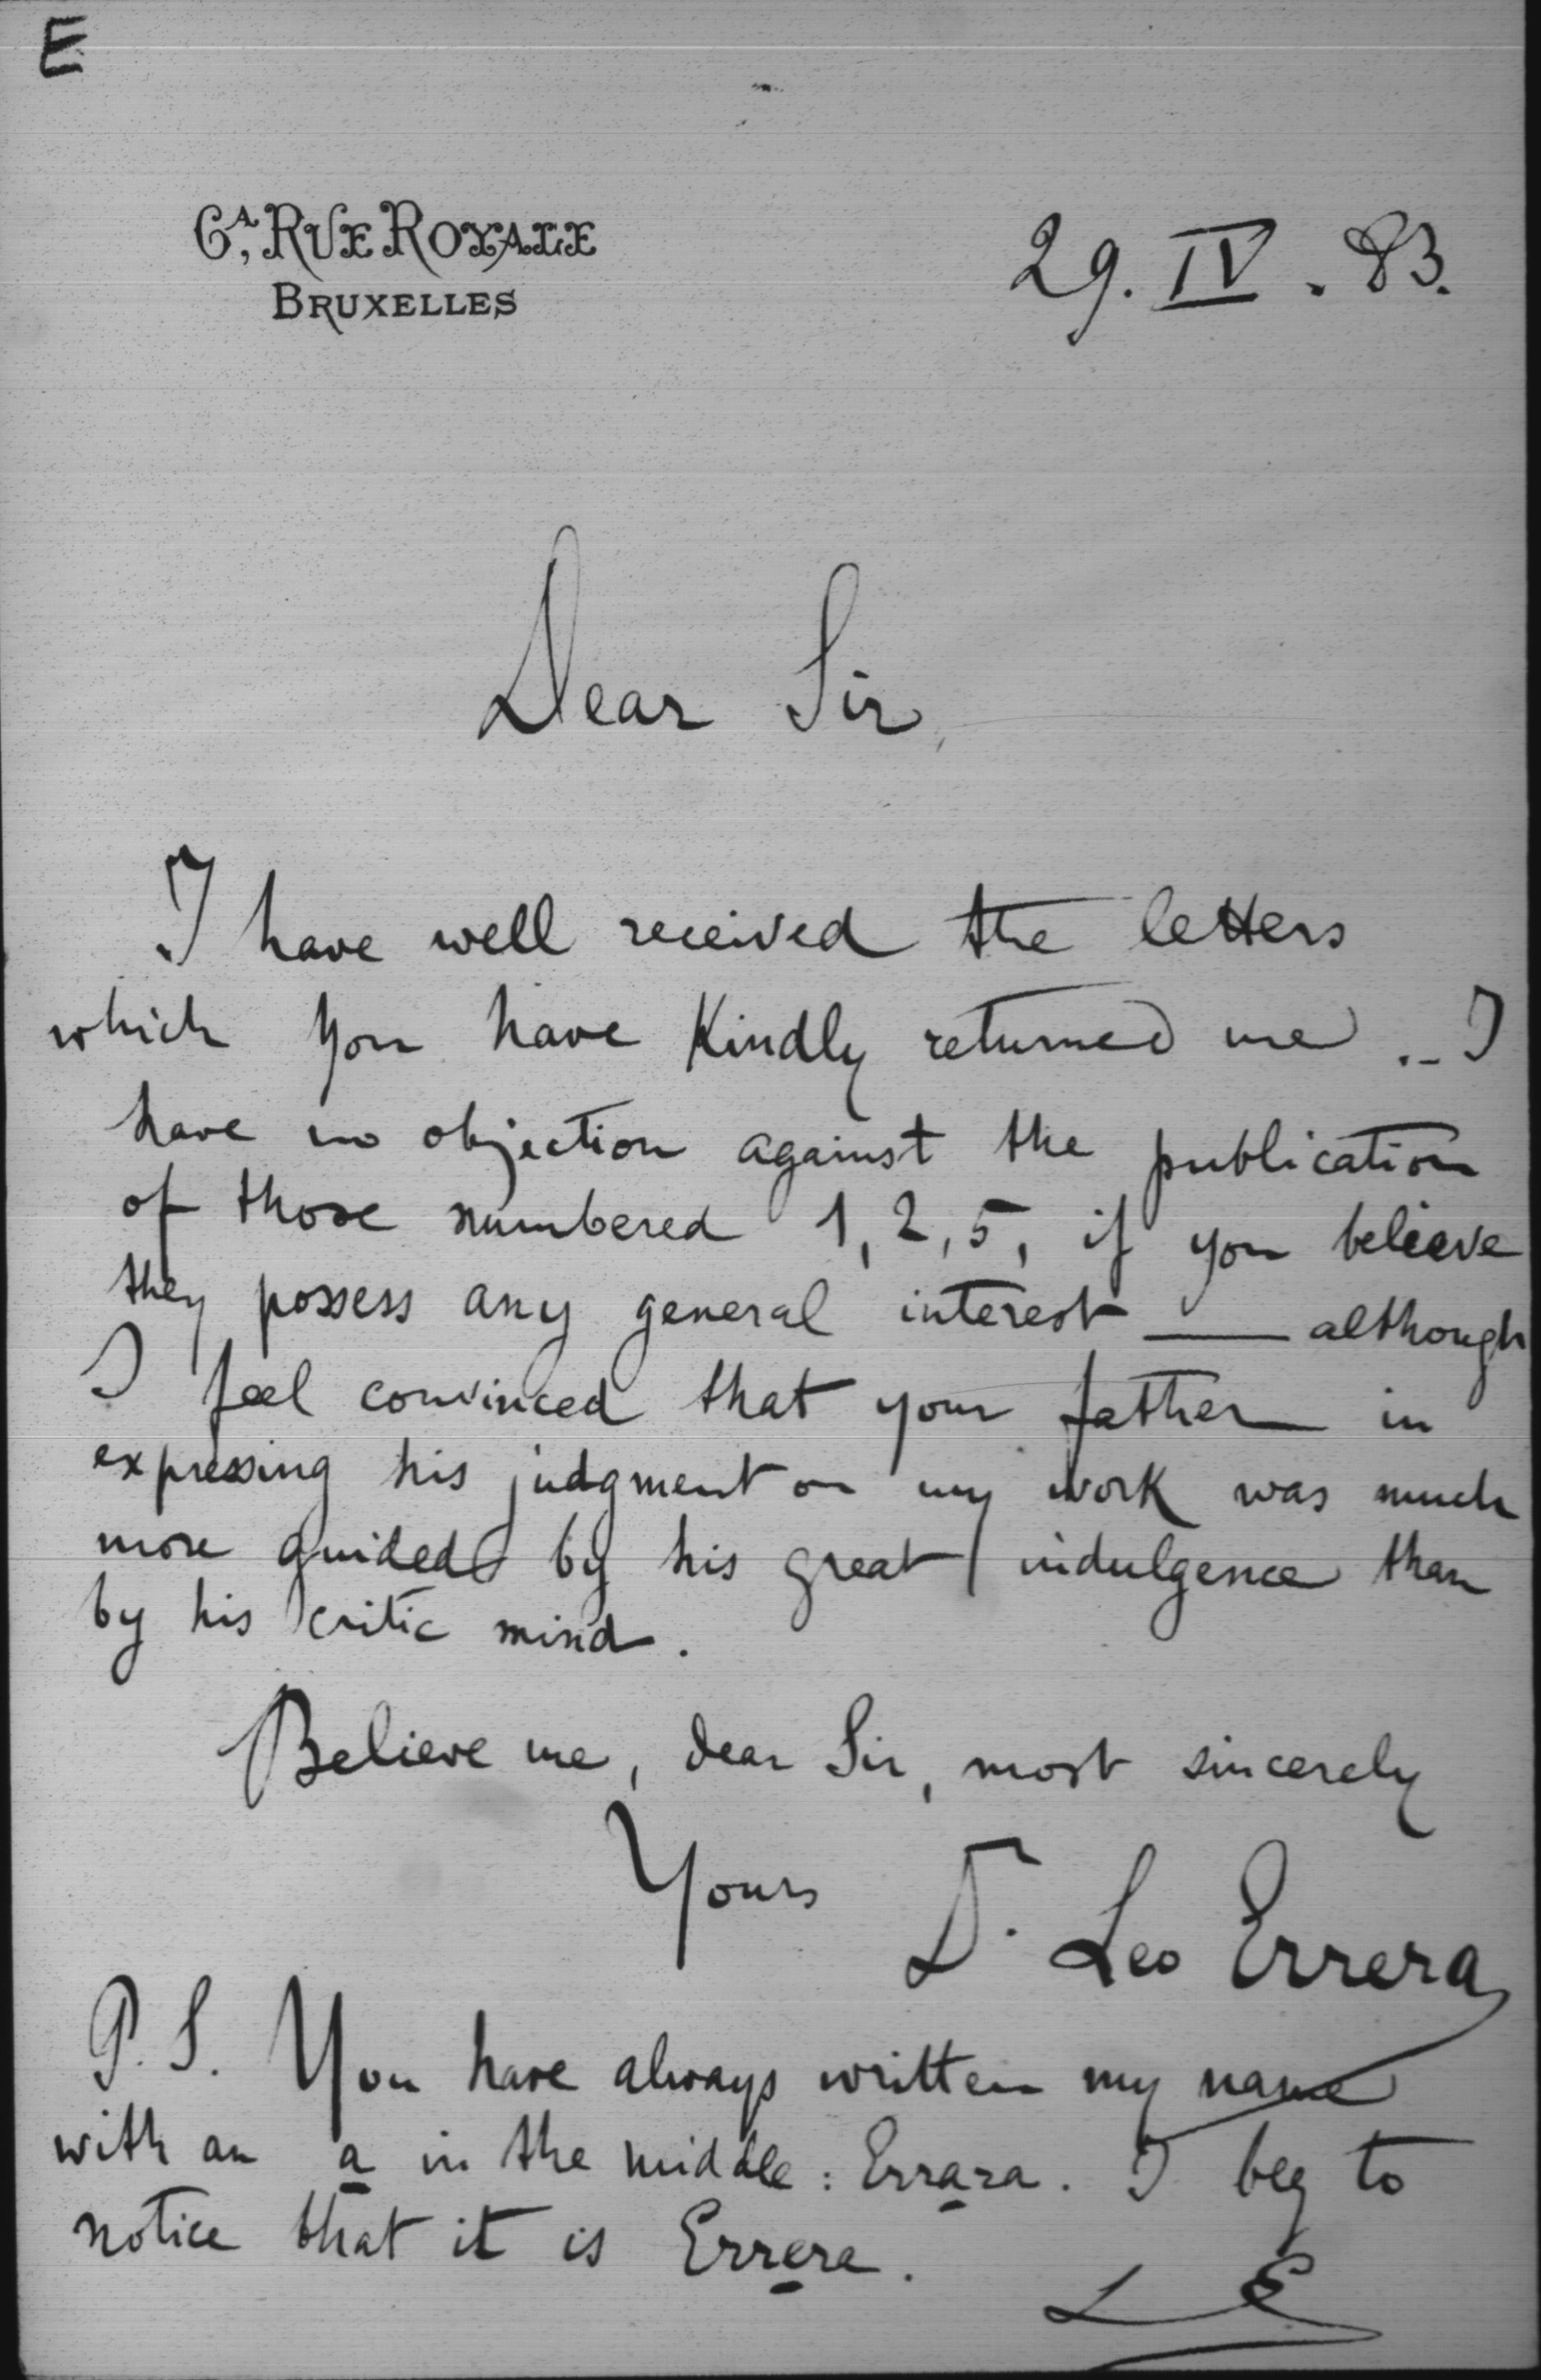 E
6A, RUE ROYALE
BRUXELLES
29. IV. 83.
Dear Sir,
I have well received the letters
which you have kindly returned me. – I
have no objection against the publication
of those numbered 1, 2, 5, if you believe
they possess any general interest — although
I feel convinced that your father in
expressing his judgment on my work was much
more guided by his great indulgence than
by his critic mind.
Believe me, dear Sir, most sincerely
Yours Dr. Leo Errera
P.S. You have always written my name
with an a in the middle: Errara. I beg to
notice that it is Errera.
LE